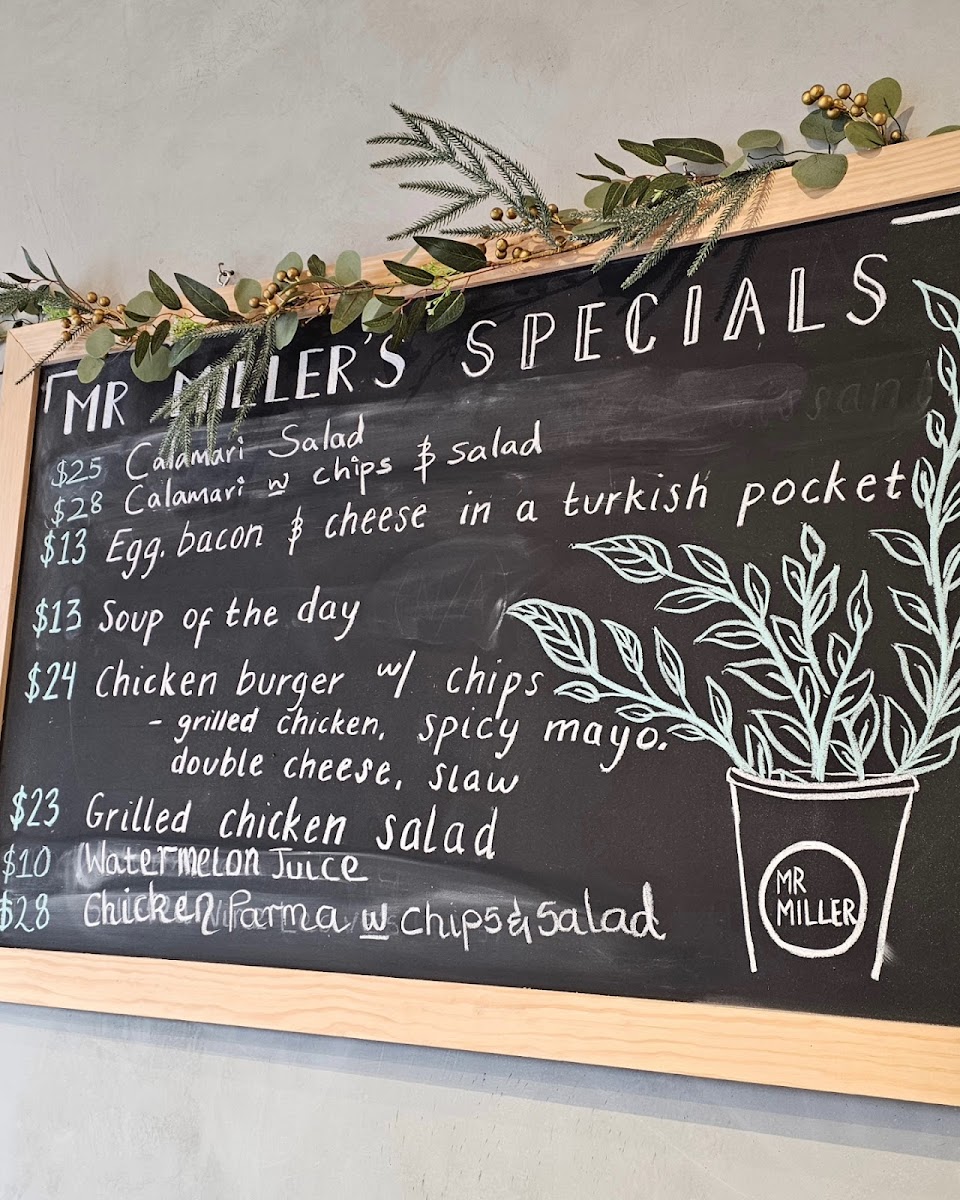 MR MILLER'S SPECIALS
$25 Calamari Salad
$28 Calamari w chips & salad
$13 Egg. bacon & cheese in a turkish pocket
$13 Soup of the day
$24 Chicken burger w/ chips
- grilled chicken, spicy mayo.
double cheese, slaw
$23 Grilled chicken salad
$10 Watermelon Juice
$28 Chicken Parma w chips & Salad
MR
MILLER